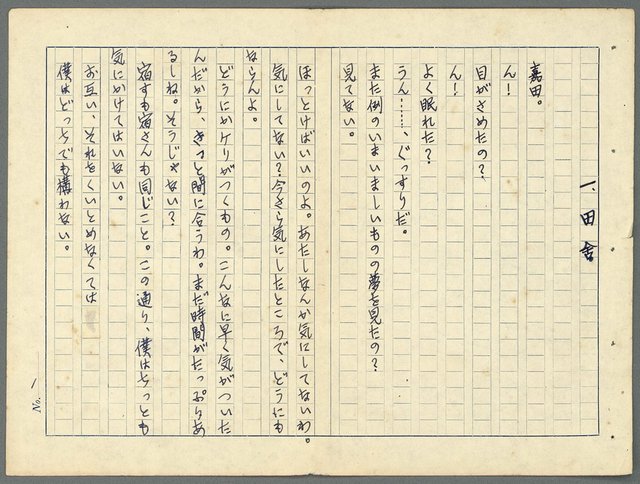 一、田舎
嘉田。
ん!
目がさめたの?
ん!
よく眠れた?
うん……、ぐっすりだ。
また例のいまいましいものの夢を見たの?
見てない。
ほっとけばいいのよ。あたしなんか気にしてないわ。
気にしてない?今さら気にしたところで、どうにも
ならんよ。
どうにかケリがつくもの。こんなに早く気がついた
んだから、きっと間に合うわ。まだ時間がたっぷりあ
るしね。そうじゃない?
宿すも宿さんも同じこと。この通り、僕はちっとも
気にかけてはいない。
お互い、それをくいとめなくては
僕はどっちでも構わない。
No. 1